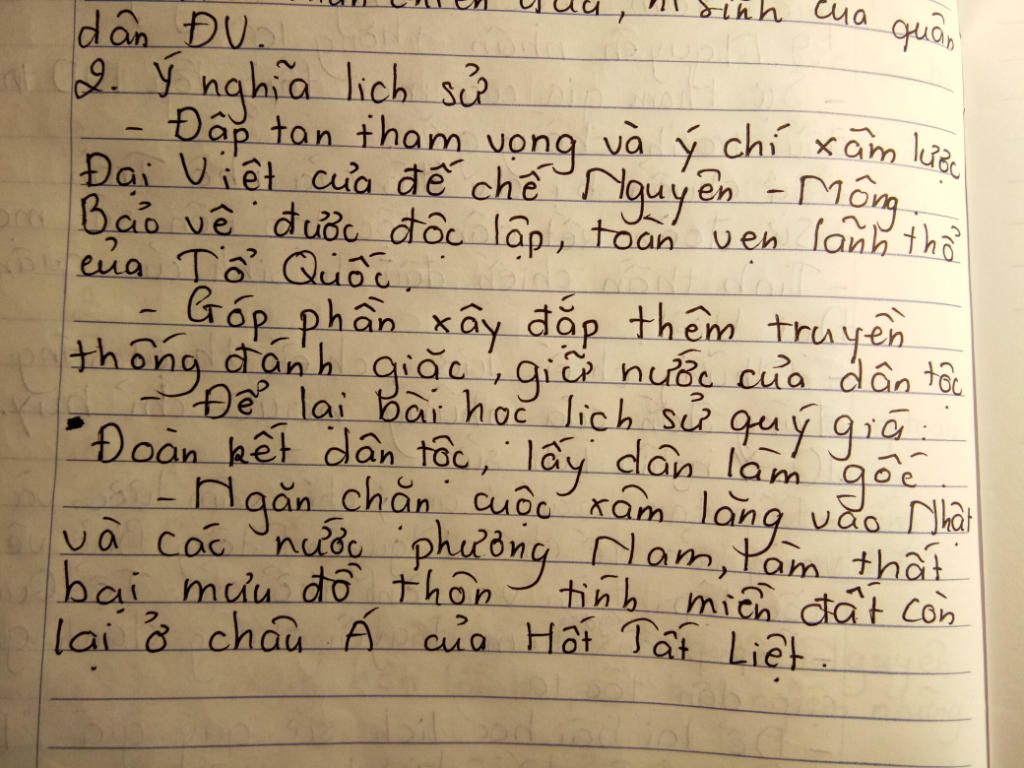 chiến đấu, hi sinh của quân
dân ĐV.
2. Ý nghĩa lịch sử
- Đập tan tham vọng và ý chí xâm lược
Đại Việt của đế chế Nguyên - Mông.
Bảo vệ được độc lập, toàn vẹn lãnh thổ
của Tổ Quốc.
- Góp phần xây đắp thêm truyền
thống đánh giặc, giữ nước của dân tộc
- Để lại bài học lịch sử quý giá:
Đoàn kết dân tộc, lấy dân làm gốc.
- Ngăn chặn cuộc xâm lăng vào Nhật
và các nước phương Nam, làm thất
bại mưu đồ thôn tính miền đất còn
lại ở châu Á của Hốt Tất Liệt.